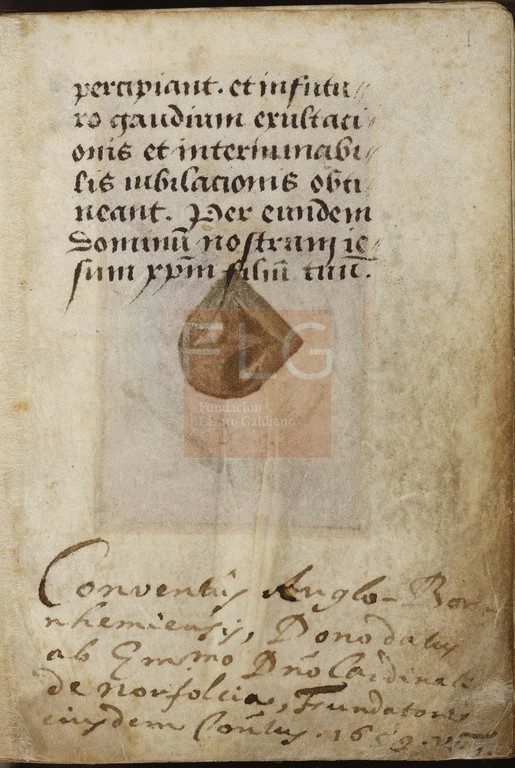 1
percipiant. et in futu
ro gaudium exultaci
onis et interminabi
lis iubilacionis obti
neant. Per eundem
Dominū nostrum ie
sum xp̄m filiū tuū.
FLG
Fundación
Lázaro Galdiano
Conventûs Anglo-Bor-
nhemiensis, Dono datus
ab Emmo Dn̄o Cardinale
de Norfolcia, Fundatore
eiusdem Con̄tus.